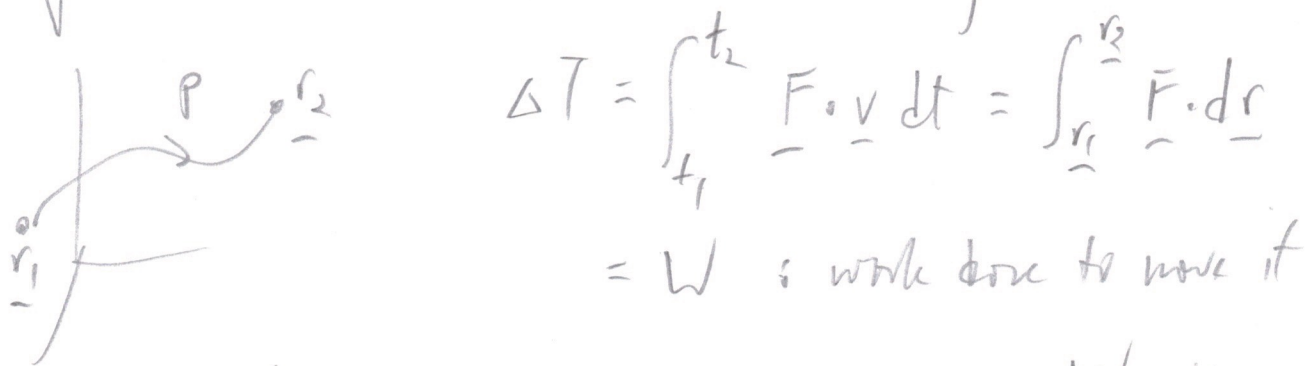 P r₂
r₁
ΔT = ∫_{t₁}^{t₂} F̲ · v̲ dt = ∫_{r̲₁}^{r̲₂} F̲ · dr̲
= W : work done to move it